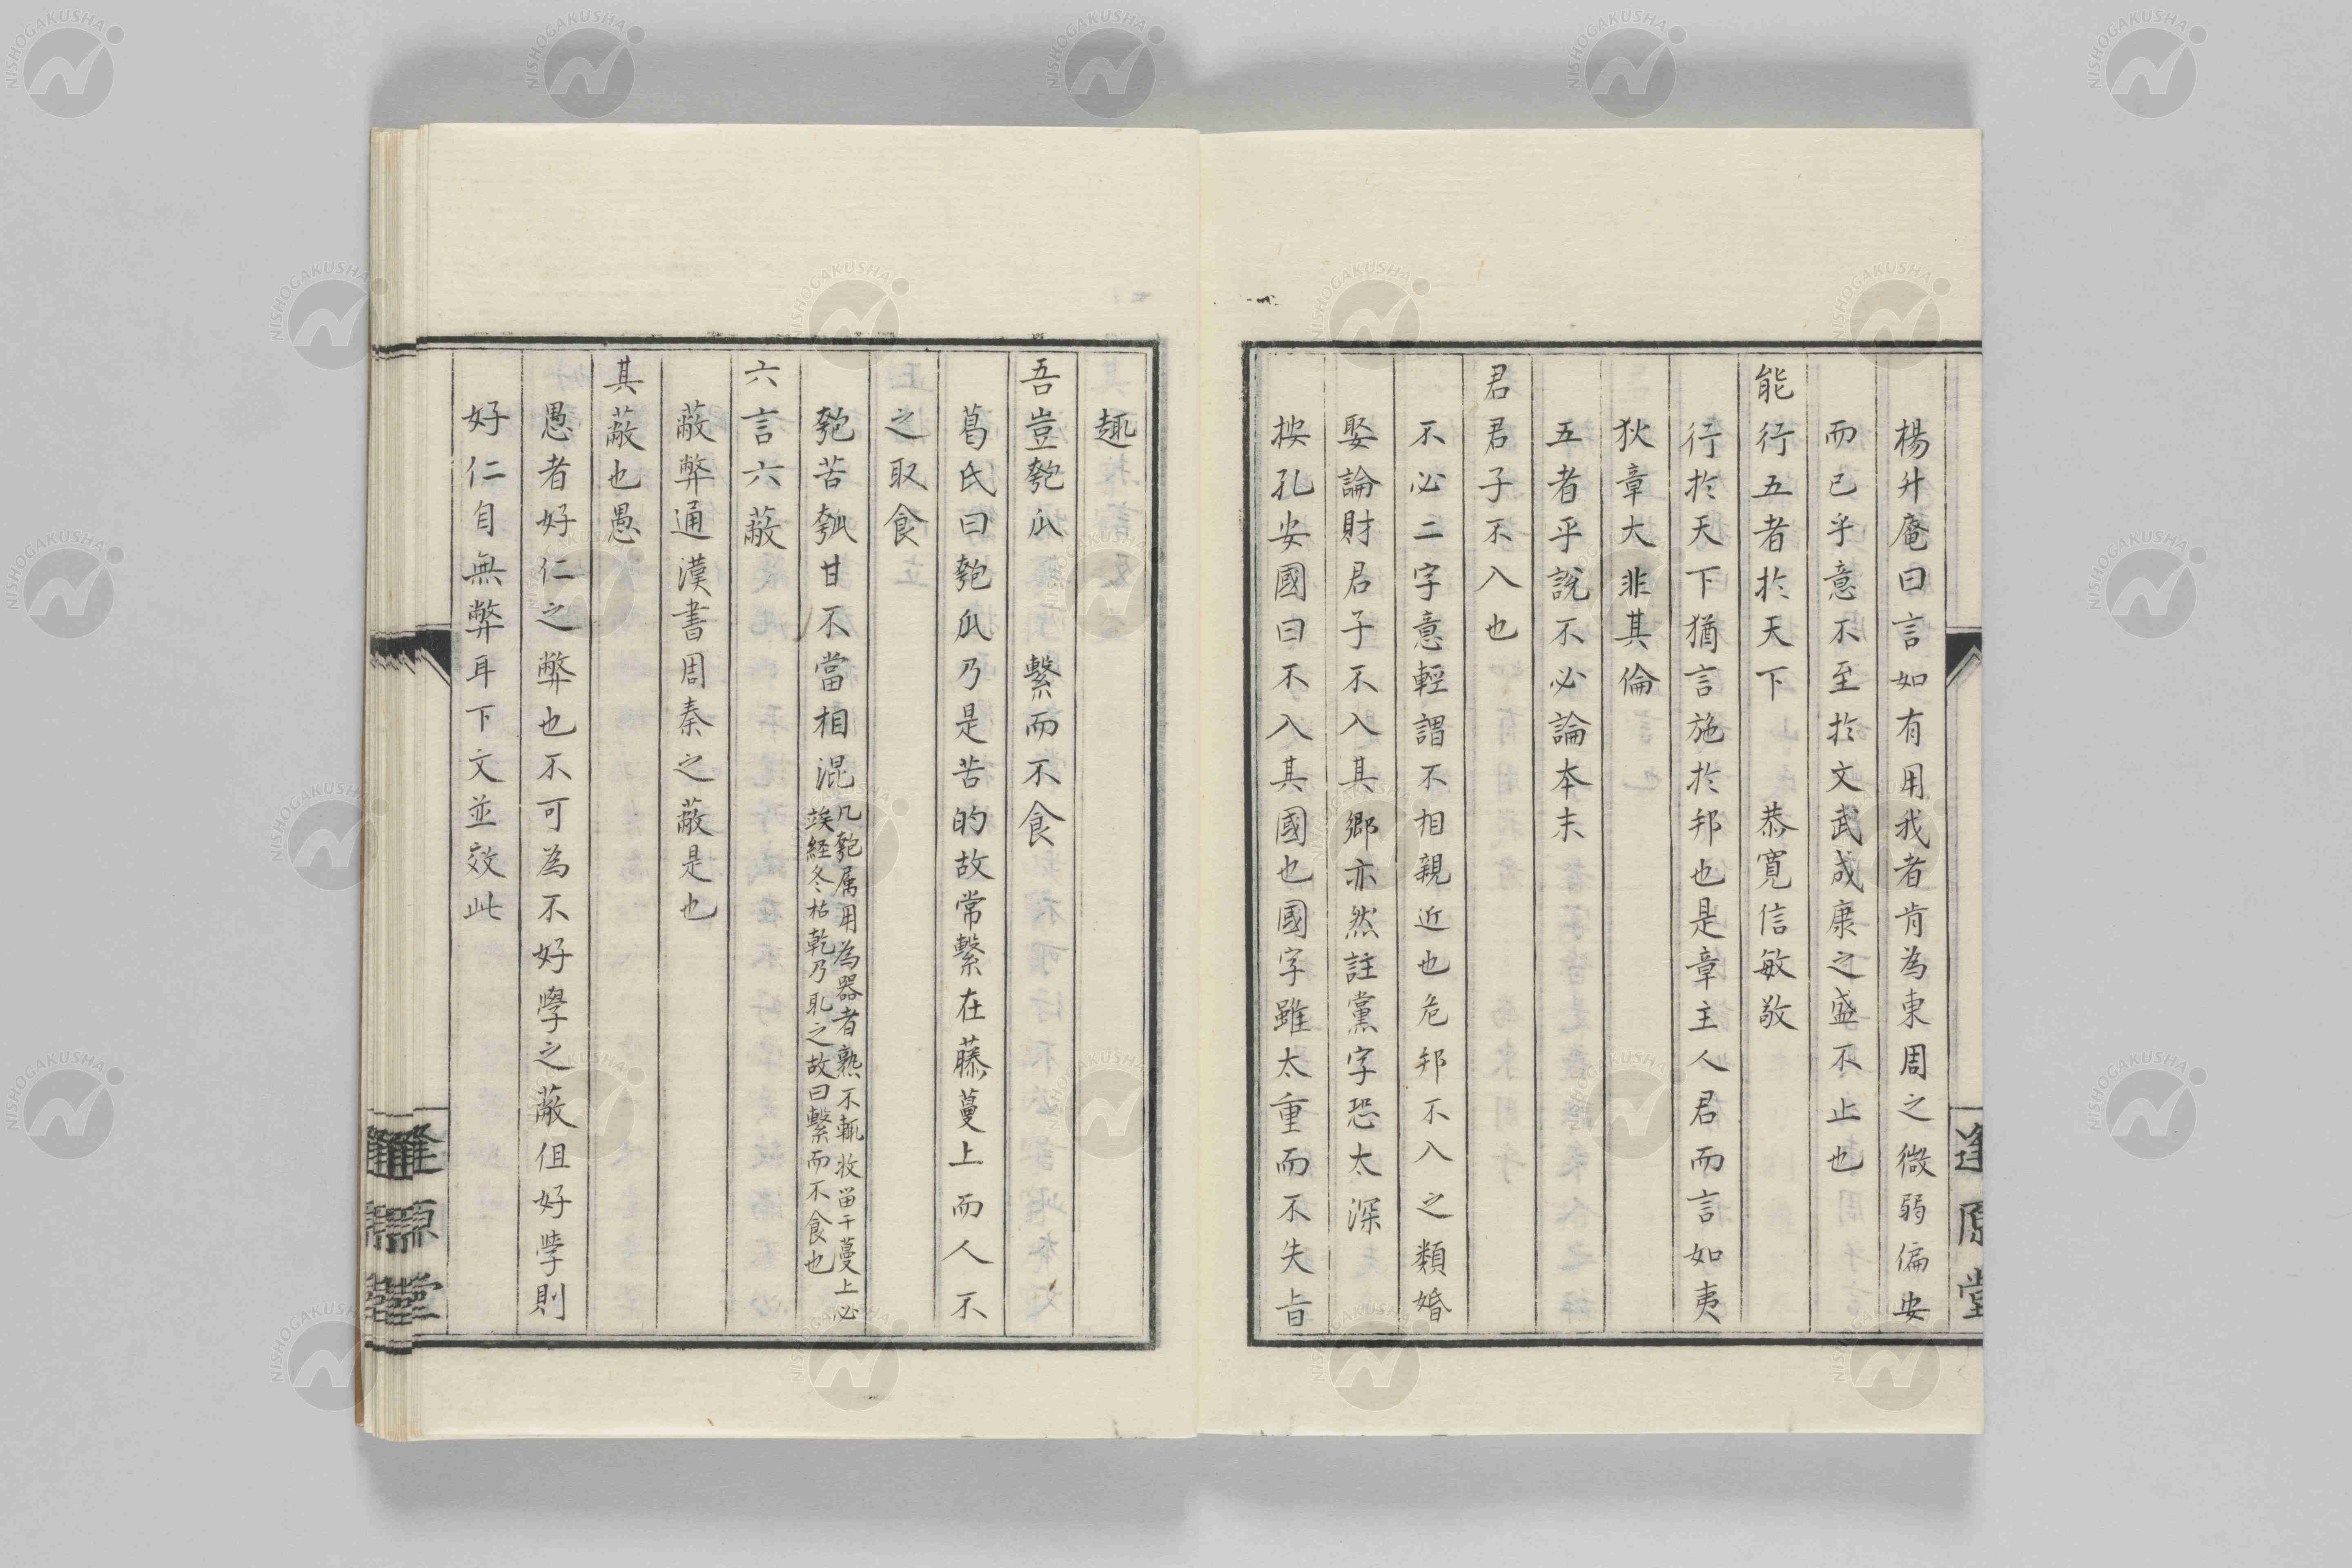 楊升庵曰言如有用我者肯為東周之微弱偏安
而已乎意不至扵文武成康之盛不止也
能行五者扵天下　恭寬信敏敬
行扵天下猶言施扵邦也是章主人君而言如夷
狄章大非其倫
五者乎說不必論本末
君君子不入也
不必二字意輕謂不相親近也危邦不入之類婚
娶論財君子不入其鄉亦然註黨字恐太深
按孔安國曰不入其國也國字雖太重而不失旨
趣
吾豈匏瓜　繫而不食
葛氏曰匏瓜乃是苦的故常繫在藤蔓上而人不
之取食
匏苦瓠甘不當相混
凡匏属用為器者熟不輒收畄于蔓上必
竢経冬枯乾乃取之故曰繫而不食也
六言六蔽
蔽弊通漢書周秦之蔽是也
其蔽也愚
愚者好仁之弊也不可為不好學之蔽但好學則
好仁自無弊耳下文並效此
逢原堂
NISHOGAKUSHA